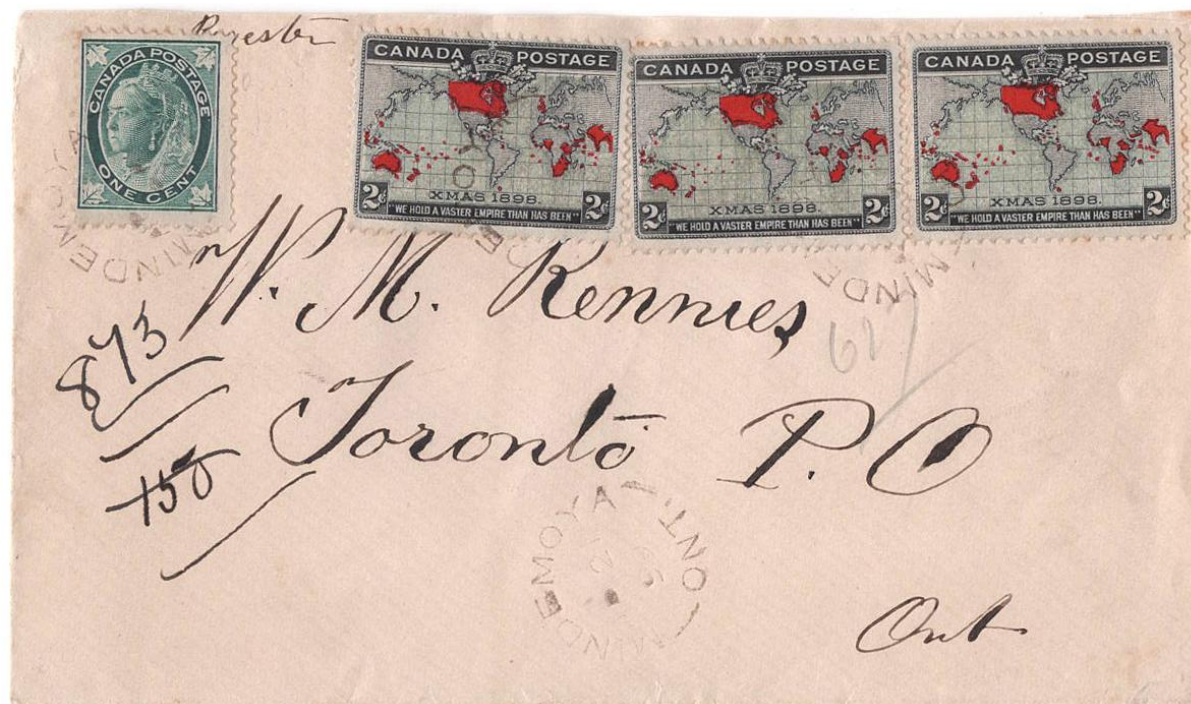 CANADA POSTAGE
ONE CENT
CANADA POSTAGE
2c XMAS 1898. 2c
"WE HOLD A VASTER EMPIRE THAN HAS BEEN"
CANADA POSTAGE
2c XMAS 1898. 2c
"WE HOLD A VASTER EMPIRE THAN HAS BEEN"
CANADA POSTAGE
2c XMAS 1898. 2c
"WE HOLD A VASTER EMPIRE THAN HAS BEEN"
W. M. Rennies
873
Toronto P.O
150
MINDEMOYA
ONT.
Ont